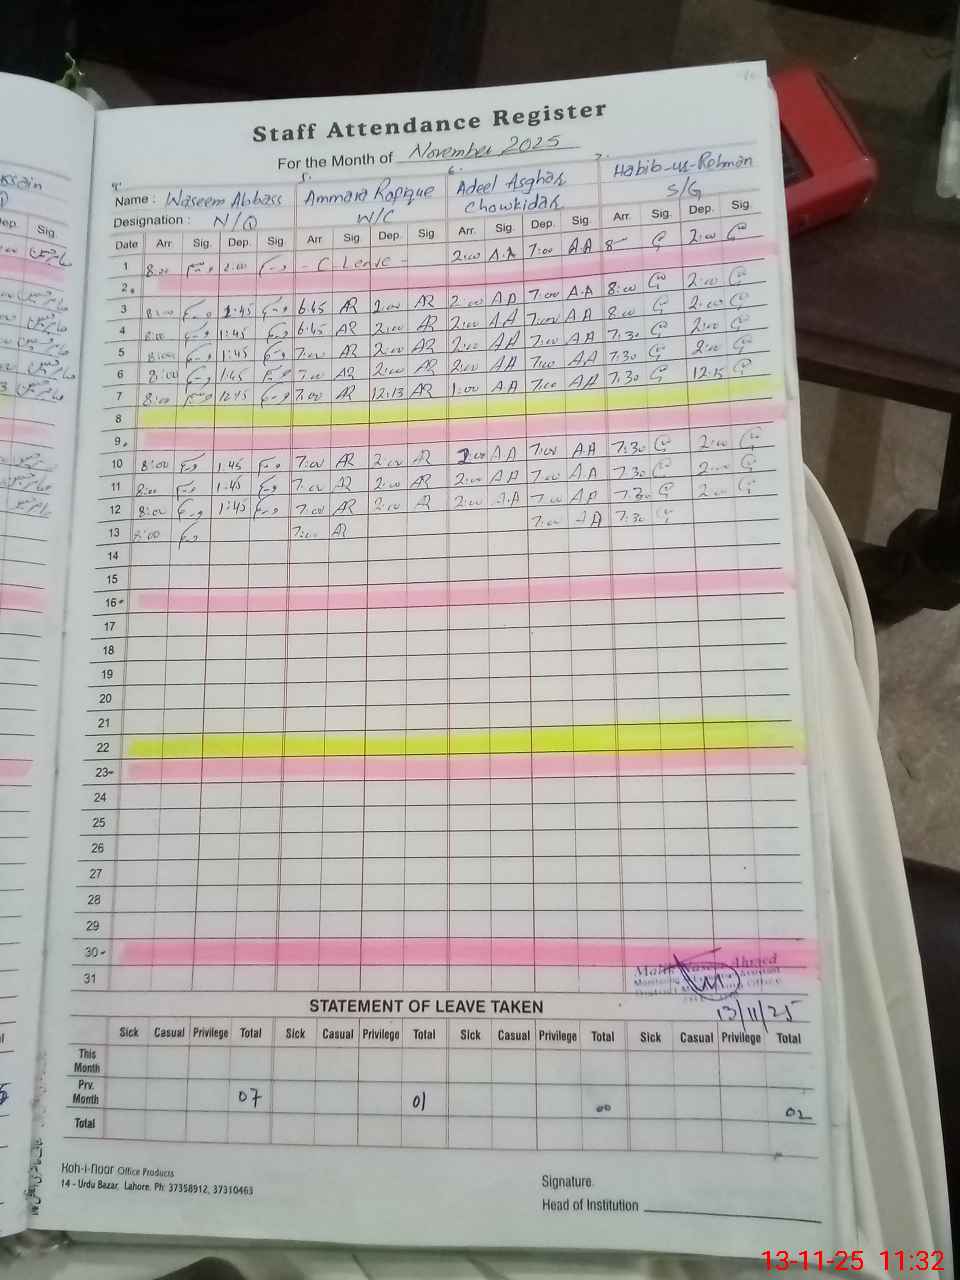 Staff Attendance Register
For the Month of November 2025
4. 5. 6. 7.
Name : Waseem Abbass Ammara Rafique Adeel Asghar Habib-ur-Rehman
Designation : N/Q W/C Chowkidar S/G
Date Arr Sig. Dep. Sig Arr Sig Dep. Sig Arr Sig. Dep. Sig. Arr. Sig. Dep. Sig.
1 8:00 2:00 - C Leave - 2:00 A.A 7:00 A.A 8 2:00
2.
3 8:00 1:45 6:45 AR 2:00 AR 2:00 AA 7:00 A.A 8:00 2:00
4 8:00 1:45 6:45 AR 2:00 AR 2:00 AA 7:00 AA 8:00 2:00
5 8:00 1:45 7:00 AR 2:00 AR 2:00 AA 7:00 AA 7:30 2:00
6 8:00 1:45 7:00 AR 2:00 AR 2:00 AA 7:00 AA 7:30 2:00
7 8:00 12:15 7:00 AR 12:13 AR 1:00 AA 7:00 AA 7:30 12:15
8
9.
10 8:00 1:45 7:00 AR 2:00 AR 2:00 AA 7:00 AA 7:30 2:00
11 8:00 1:45 7:00 AR 2:00 AR 2:00 AA 7:00 AA 7:30 2:00
12 8:00 1:45 7:00 AR 2:00 AR 2:00 A.A 7:00 AA 7:30 2:00
13 8:00 7:00 AR 7:00 AA 7:30
14
15
16-
17
18
19
20
21
22
23-
24
25
26
27
28
29
30-
31
Ahmed
13/11/25
STATEMENT OF LEAVE TAKEN
Sick Casual Privilege Total Sick Casual Privilege Total Sick Casual Privilege Total Sick Casual Privilege Total
This Month
Prv. Month 07 01 00 02
Total
Koh-i-Noor Office Products
14 - Urdu Bazar, Lahore. Ph: 37358912, 37310463
Signature
Head of Institution
13-11-25 11:32